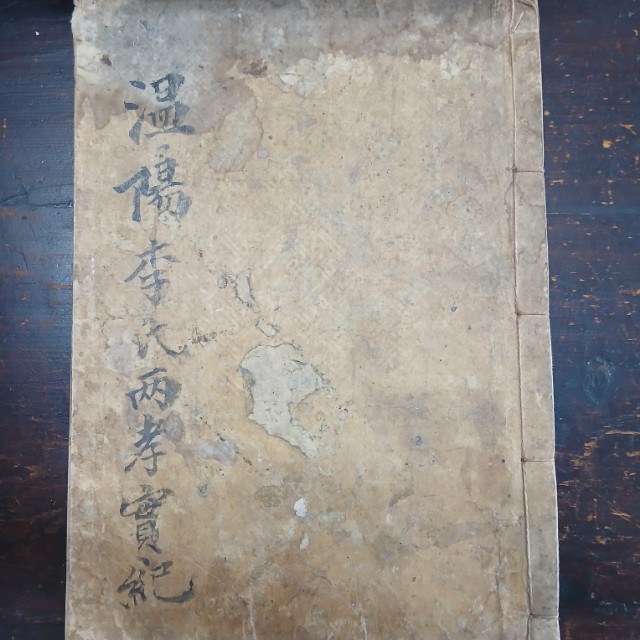 溫陽李氏兩孝實紀